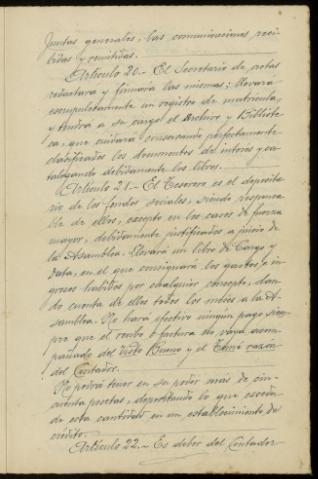 Juntas generales, las comunicaciones reci-
bidas y remitidas.
Artículo 20.- El Secretario de actas
redactara y firmará las mismas; llevará
escrupulosamente un registro de matricula,
y tendrá a su cargo el Archivo y Bibliote
ca, que cuidará conservando perfectamente
clasificados los documentos de interés y ca-
talogando debidamente los libros.
Artículo 21.- El Tesorero es el deposita
rio de los fondos sociales, siendo responsa-
ble de ellos, excepto en los casos de fuerza
mayor, debidamente justificados a juicio de
la Asamblea. Llevará un libro de Cargo y
Data, en el que consignará los gastos e in
gresos habidos por cualquier concepto, dan
do cuenta de ellos todos los meses a la A-
samblea. No hará efectivo ningún pago siem
pre que el recibo o factura no vaya acom
pañado del Visto Bueno y el Tomé razón
del Contador.
No podrá tener en su poder más de cin-
cuenta pesetas, depositando lo que exceda
de esta cantidad en un establecimiento de
crédito.
Artículo 22.- Es deber del Contador